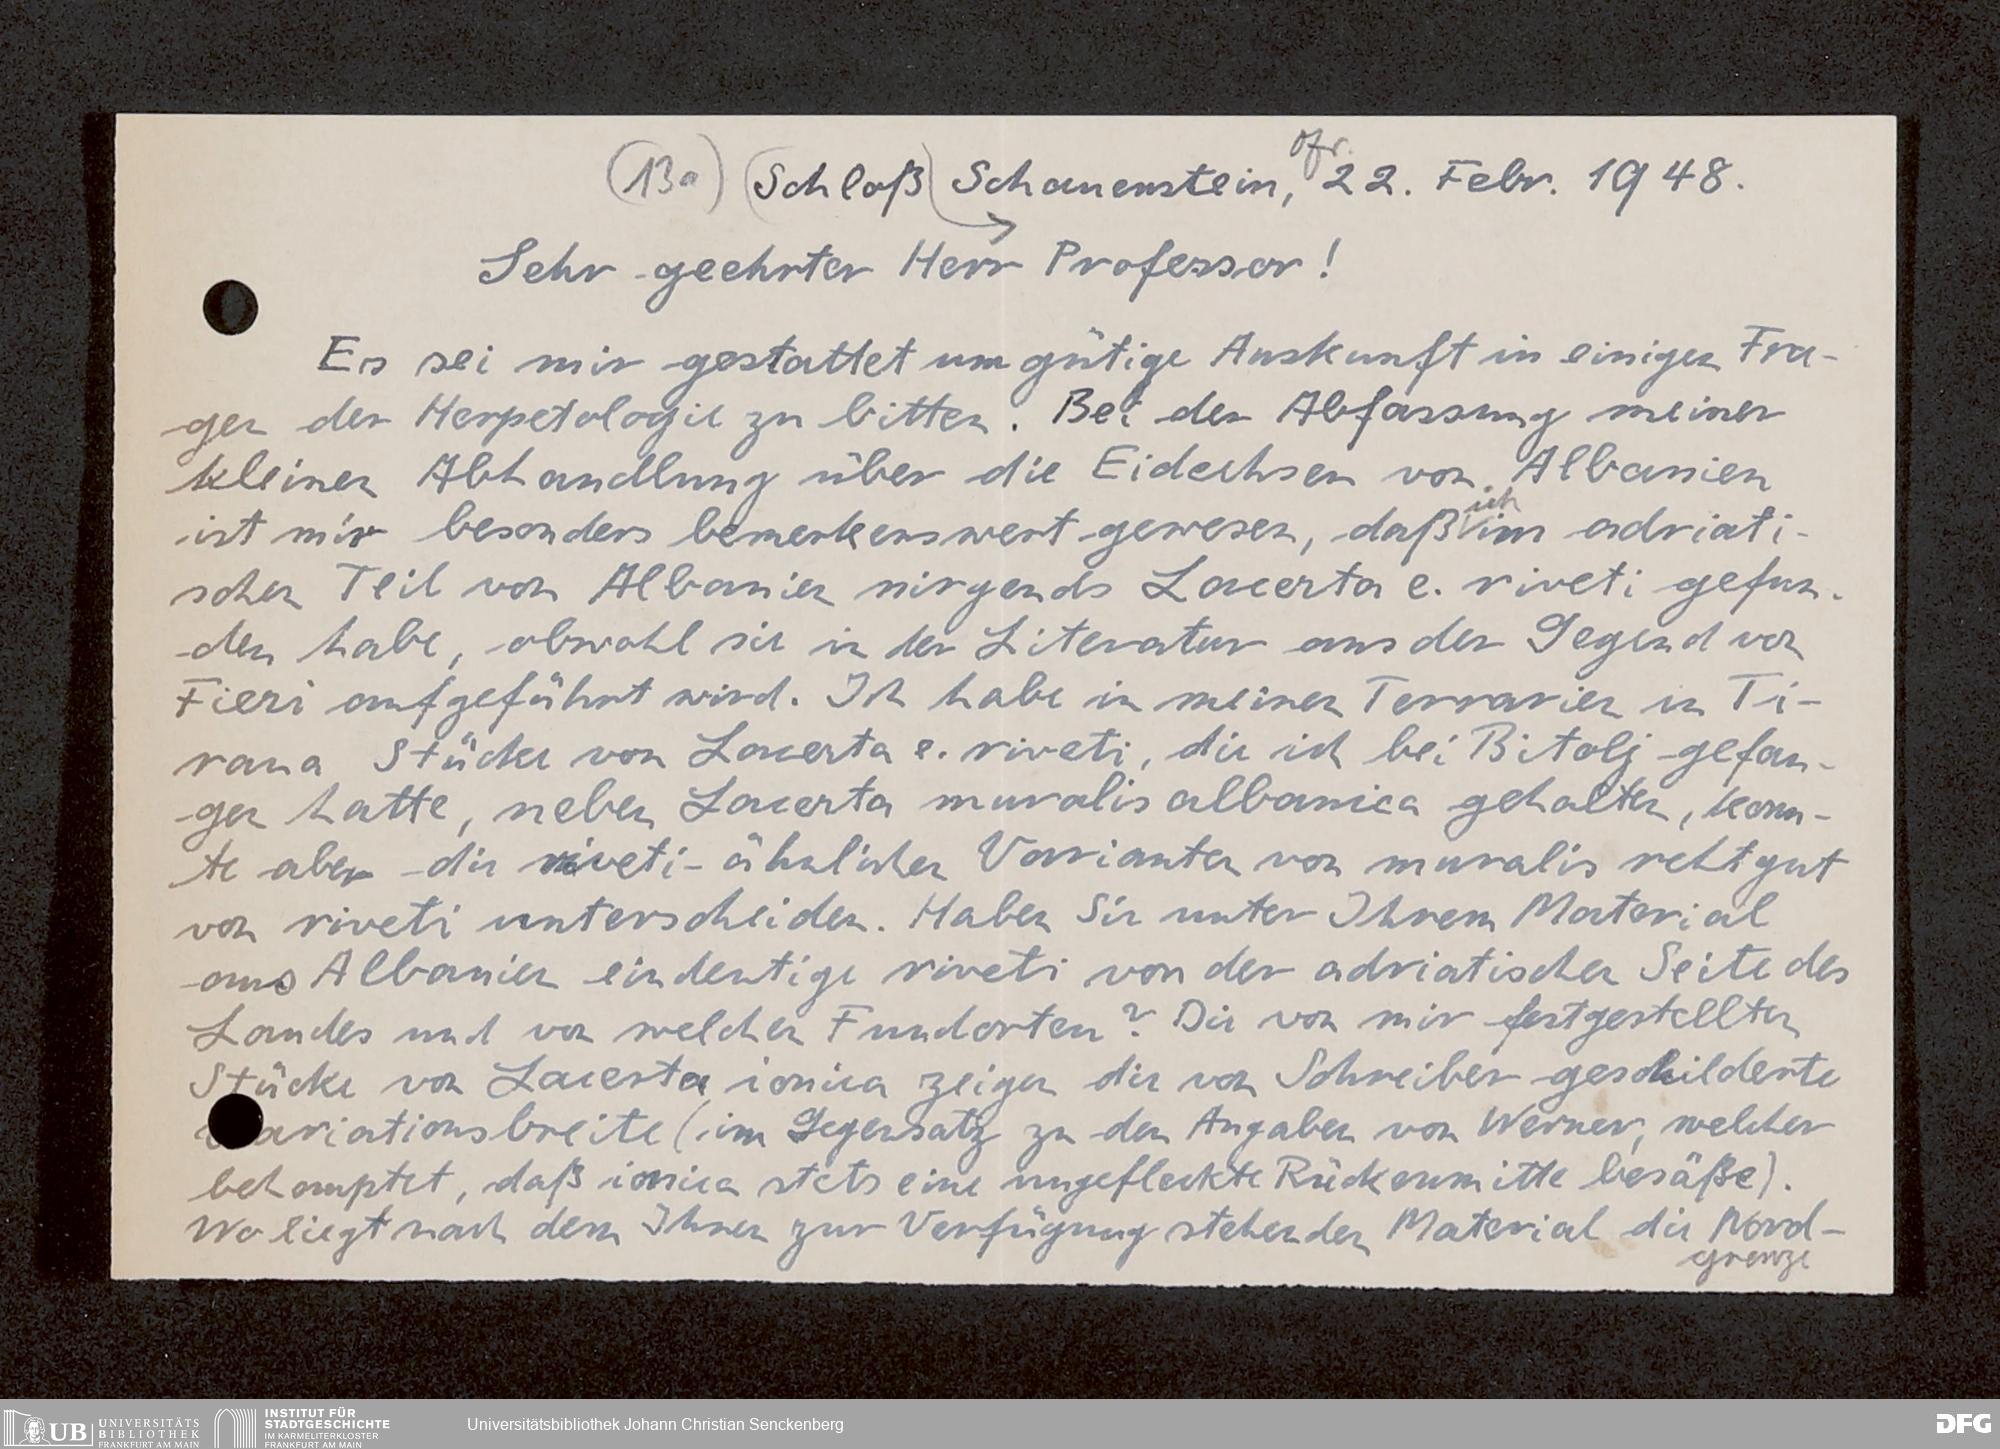 (13a) (Schloß) Schauenstein, Ofr. 22. Febr. 1948.
Sehr geehrter Herr Professor!
Es sei mir gestattet um gütige Auskunft in einigen Fra-
gen der Herpetologie zu bitten. Bei der Abfassung meiner
kleinen Abhandlung über die Eidechsen von Albanien
ist mir besonders bemerkenswert gewesen, daß ich im adriati-
schen Teil von Albanien nirgends Lacerta e. riveti gefun-
den habe, obwohl sie in der Literatur aus der Gegend von
Fieri aufgeführt wird. Ich habe in meinen Terrarien in Ti-
rana Stücke von Lacerta e. riveti, die ich bei Bitolj gefan-
gen hatte, neben Lacerta muralis albanica gehalten, konn-
te aber die riveti-ähnlichen Varianten von muralis recht gut
von riveti unterscheiden. Haben Sie unter Ihrem Material
aus Albanien eindeutige riveti von der adriatischen Seite des
Landes und von welchen Fundorten? Die von mir festgestellten
Stücke von Lacerta ionica zeigen die von Schreiber geschilderte
Variationsbreite (im Gegensatz zu den Angaben von Werner, welcher
behauptet, daß ionica stets eine ungefleckte Rückenmitte besäße).
Wo liegt nach dem Ihnen zur Verfügung stehenden Material die Nord-
grenze
UB UNIVERSITÄTS
BIBLIOTHEK
FRANKFURT AM MAIN
INSTITUT FÜR
STADTGESCHICHTE
IM KARMELITERKLOSTER
FRANKFURT AM MAIN
Universitätsbibliothek Johann Christian Senckenberg
DFG